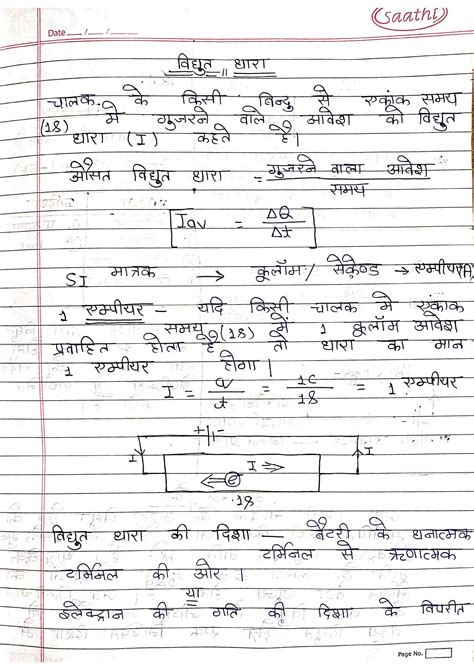 Saathi
Date __/__/__
विद्युत धारा
चालक के किसी बिन्दु से एकांक समय
(1s) में गुजरने वाले आवेश को विद्युत
धारा (I) कहते है।
औसत विद्युत धारा = गुजरने वाला आवेश / समय
Iav = ΔQ / Δt
SI मात्रक → कूलॉम/सेकेण्ड → एम्पीयर(A)
1 एम्पीयर – यदि किसी चालक में एकांक
समय (1s) में 1 कूलॉम आवेश
प्रवाहित होता है तो धारा का मान
1 एम्पीयर होगा।
I = Q / t = 1C / 1s = 1 एम्पीयर
+ -
I I
I →
← e
1s
विद्युत धारा की दिशा — बैटरी के धनात्मक
टर्मिनल से ऋणात्मक
टर्मिनल की ओर।
या
इलेक्ट्रान की गति की दिशा के विपरीत
Page No.